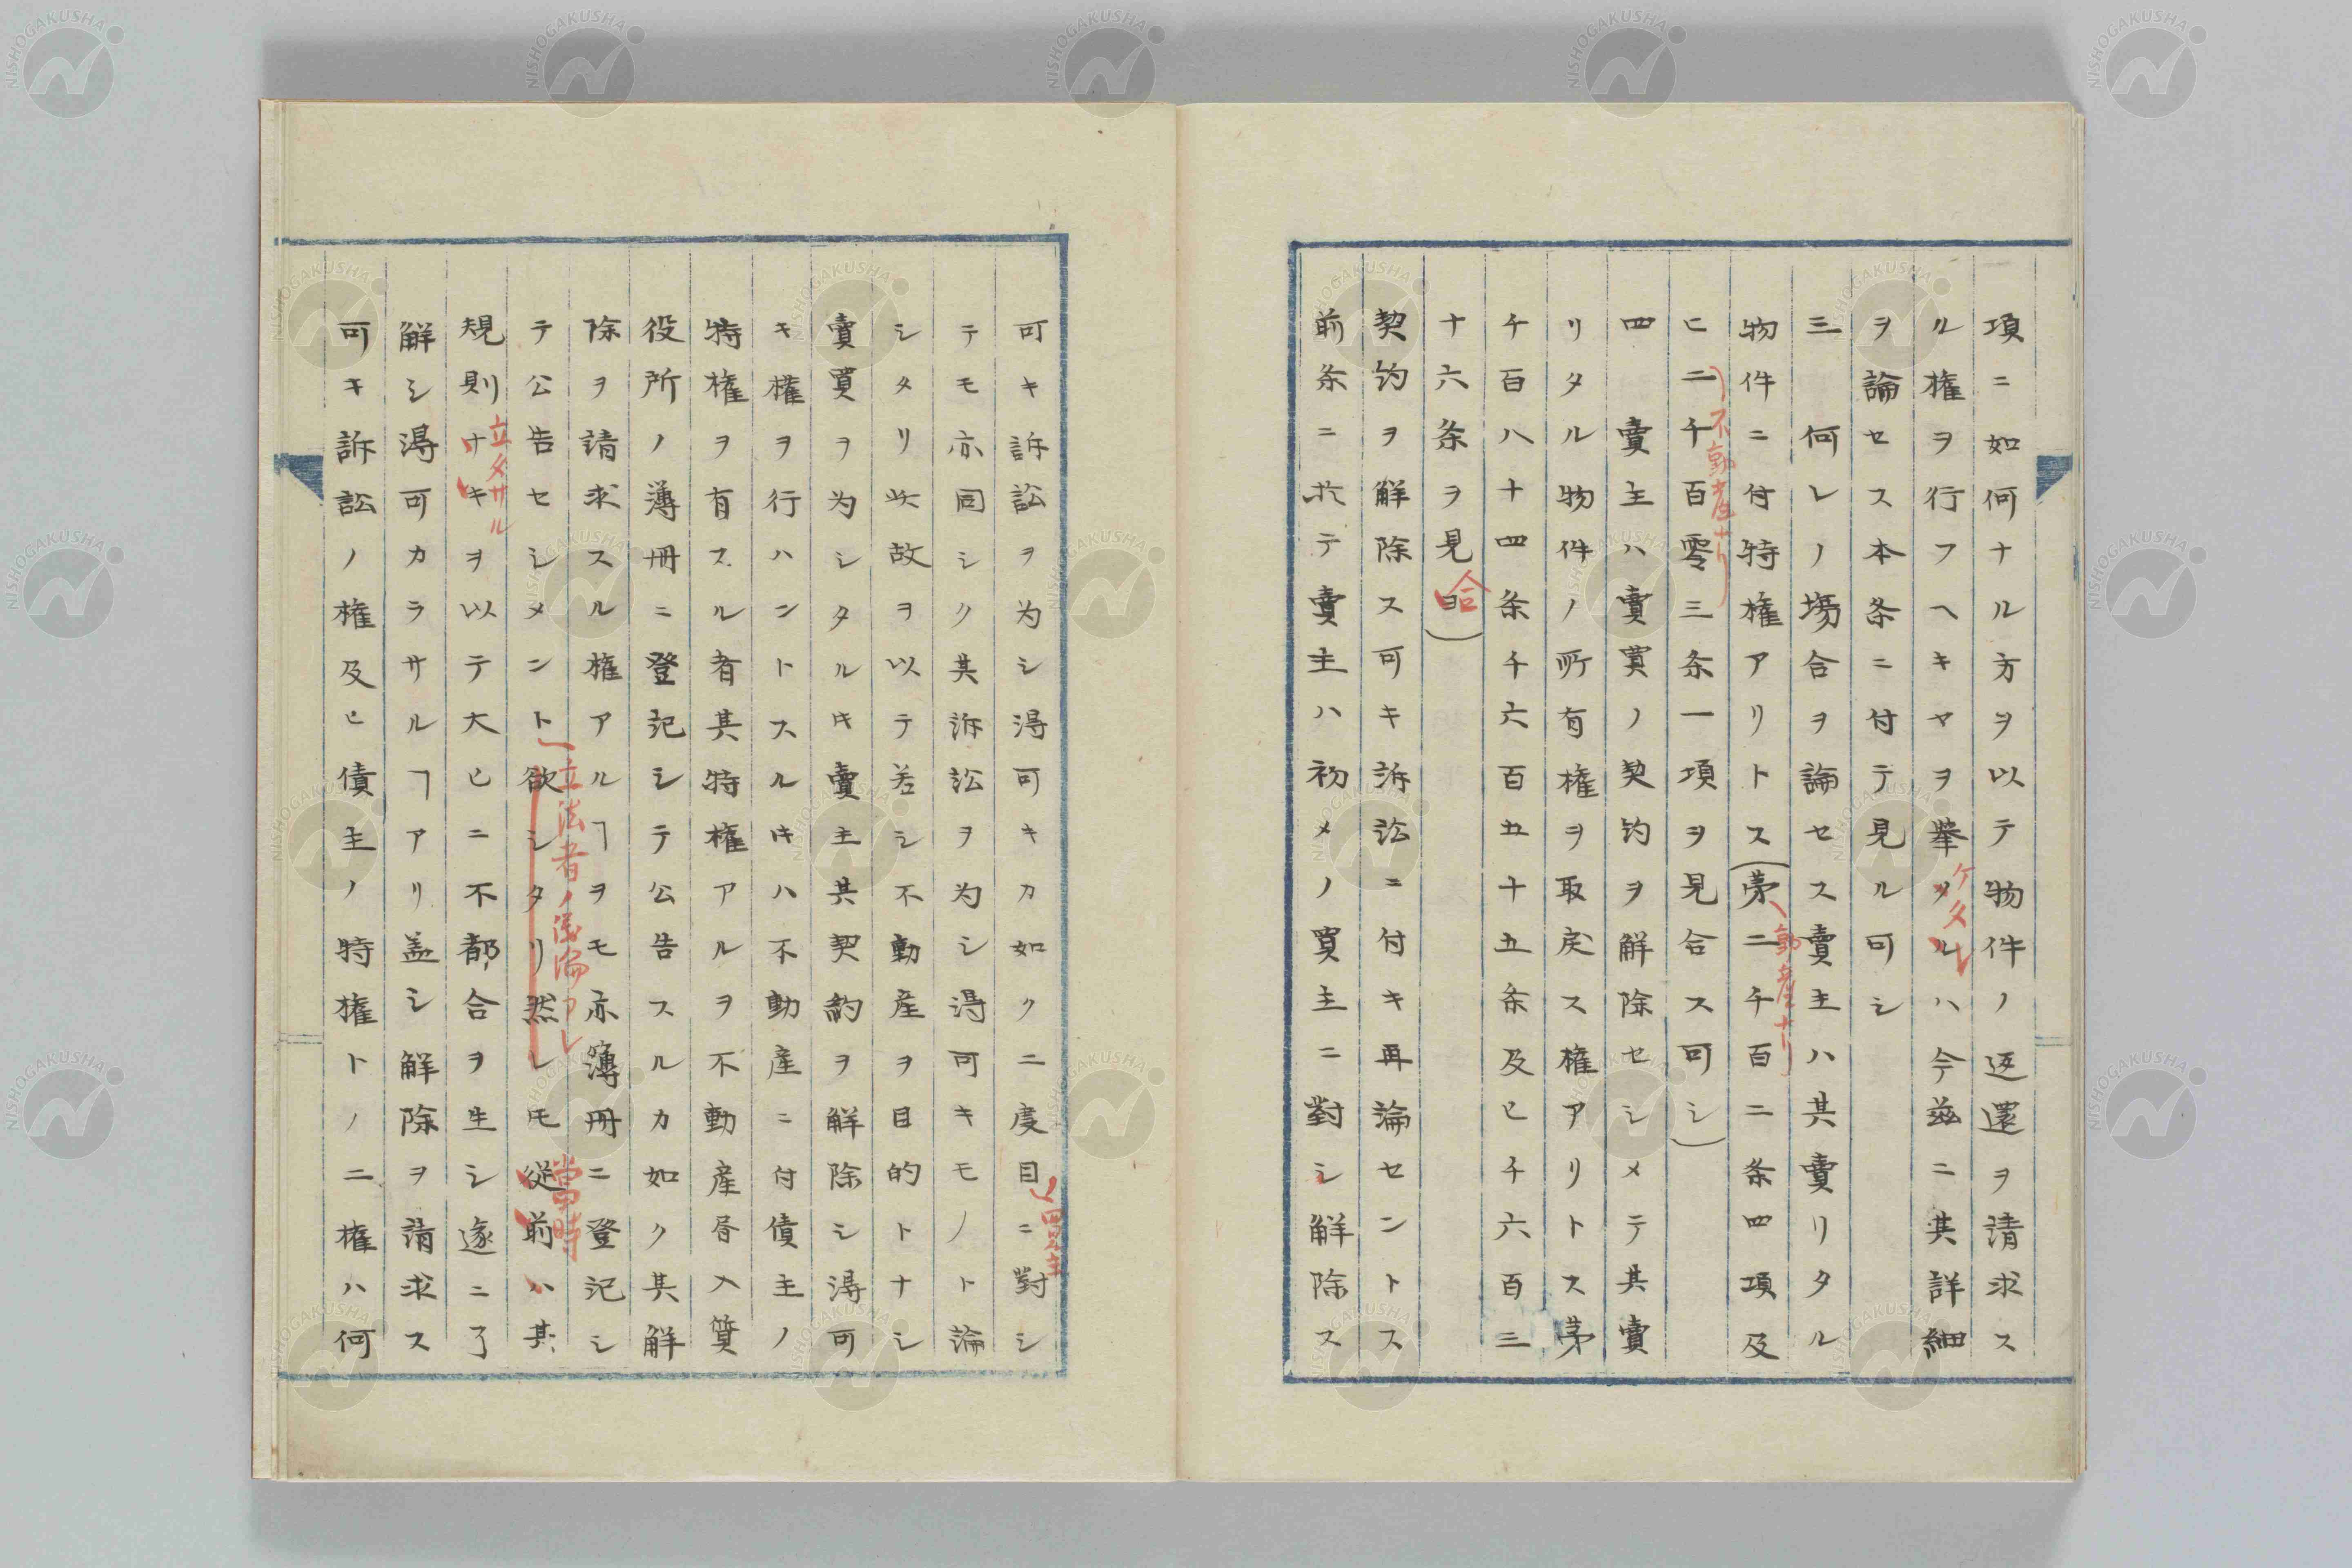 項ニ如何ナル方ヲ以テ物件ノ返還ヲ請求ス
ル権ヲ行フヘキヤヲ挙タルハ今茲ニ其詳細
ケタル
ヲ論セス本条ニ付テ見ル可シ
三　何レノ塲合ヲ論セス賣主ハ其賣リタル
物件ニ付特権アリトス(第二千百二条四項及
(動産ナリ)
ヒ二千百零三条一項ヲ見合ス可シ)
(不動産ナリ)
四　賣主ハ賣買ノ契約ヲ解除セシメテ其賣
リタル物件ノ所有権ヲ取戻ス権アリトス第
千百八十四条千六百五十五条及ヒ千六百三
十六条ヲ見ヨ)
合
契約ヲ解除ス可キ訴訟ニ付キ再論セントス
前条ニ於テ賣主ハ初メノ買主ニ對シ解除ス
可キ訴訟ヲ為シ得可キカ如ク二度目ニ對シ
買主
テモ亦同シク其訴訟ヲ為シ得可キモノト論
シタリ此故ヲ以テ若シ不動産ヲ目的トナシ
賣買ヲ為シタル時賣主其契約ヲ解除シ得可
キ権ヲ行ハントスル時ハ不動産ニ付債主ノ
特権ヲ有スル者其特権アルヲ不動産書入質
役所ノ薄冊ニ登記シテ公告スルカ如ク其解
除ヲ請求スル権アルヿヲモ亦簿冊ニ登記シ
テ公告セシメント欲シタリ然レモ従前ハ其
立法者ノ
當時
規則ナキヲ以テ大ヒニ不都合ヲ生シ遂ニ了
立タサル
解シ得可カラサルヿアリ蓋シ解除ヲ請求ス
可キ訴訟ノ権及ヒ債主ノ特権トノ二権ハ何